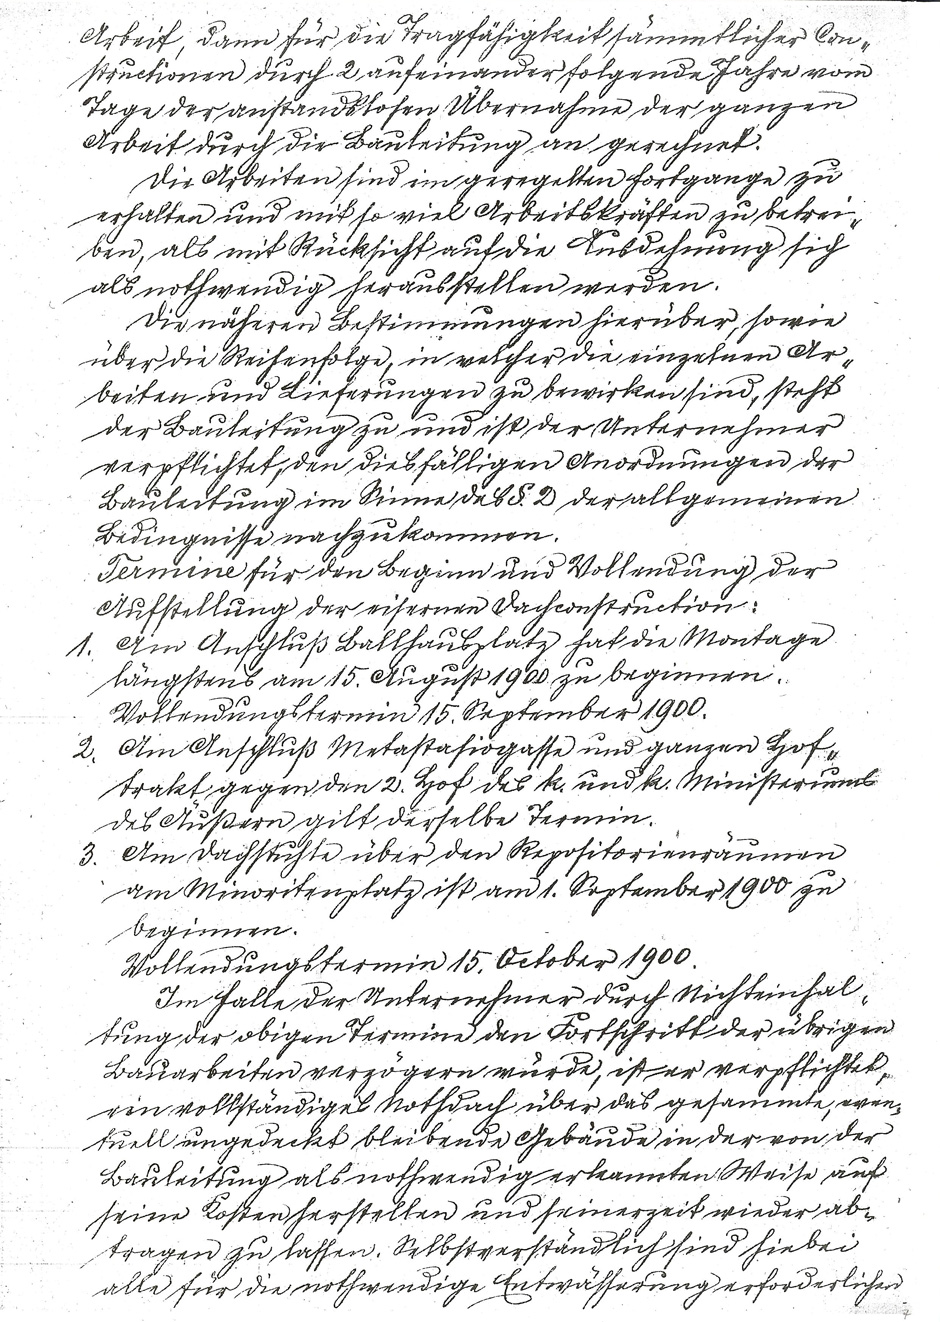 Arbeit, dann für die Tragfähigkeit sämmtlicher Con-
structionen durch 2 aufeinander folgende Jahre vom
Tage der anstandslosen Übernahme der ganzen
Arbeit durch die Bauleitung an gerechnet.
Die Arbeiten sind im geregelten Fortgange zu
erhalten und mit so viel Arbeitskräften zu betrei-
ben, als mit Rücksicht auf die Ausdehnung sich
als nothwendig herausstellen werden.
Die näheren Bestimmungen hierüber, sowie
über die Reihenfolge, in welcher die einzelnen Ar-
beiten und Lieferungen zu bewirken sind, steht
der Bauleitung zu und ist der Unternehmer
verpflichtet, den diesfälligen Anordnungen der
Bauleitung im Sinne des §. 2 der allgemeinen
Bedingnisse nachzukommen.
Termine für den Beginn und Vollendung der
Aufstellung der eisernen Dachconstruction:
1. Am Anschluß Ballhausplatz hat die Montage
längstens am 15. August 1900 zu beginnen.
Vollendungstermin 15. September 1900.
2. Am Anschluß Metastasiogasse und ganzen Hof-
trakt gegen den 2. Hof des k. und k. Ministeriums
des Äußern gilt derselbe Termin.
3. Am Dachstuhle über den Repositorienräumen
am Minoritenplatz ist am 1. September 1900 zu
beginnen.
Vollendungstermin 15. October 1900.
Im Falle der Unternehmer durch Nichteinhal-
tung der obigen Termine den Fortschritt der übrigen
Bauarbeiten verzögern würde, ist er verpflichtet,
ein vollständiges Nothdach über das gesammte, even-
tuell ungedeckt bleibende Gebäude in der von der
Bauleitung als nothwendig erkannten Weise auf
seine Kosten herstellen und seinerzeit wieder ab-
tragen zu lassen. Selbstverständlich sind hiebei
alle für die nothwendige Entwässerung erforderlichen